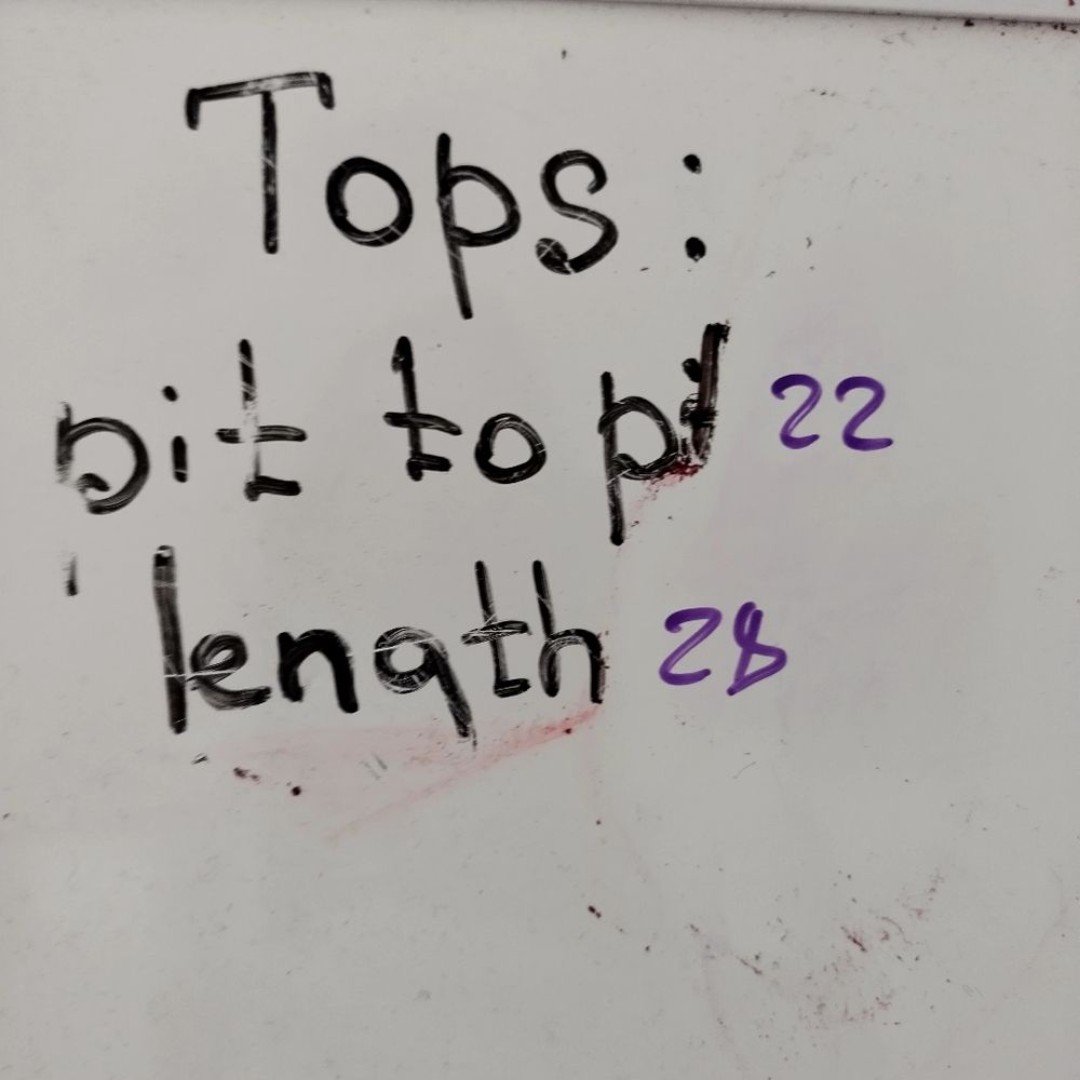 Tops:
pit to pit 22
length 28